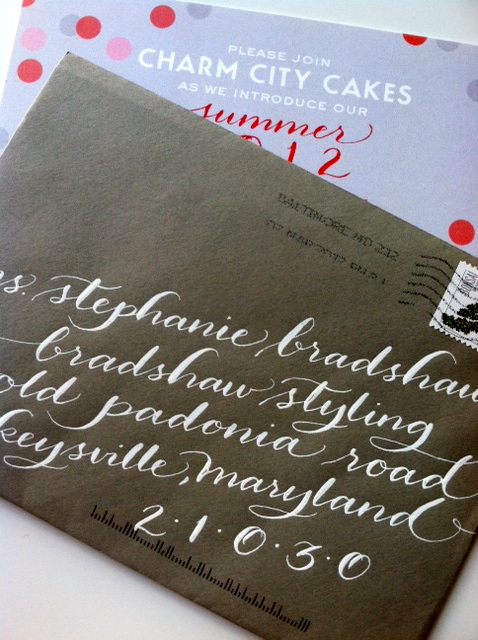 PLEASE JOIN
CHARM CITY CAKES
AS WE INTRODUCE OUR
summer
2012
BALTIMORE MD 212
07 MAR 2012 PM
s. stephanie bradshaw
bradshaw styling
old padonia road
keysville, Maryland
2·1·0·3·0